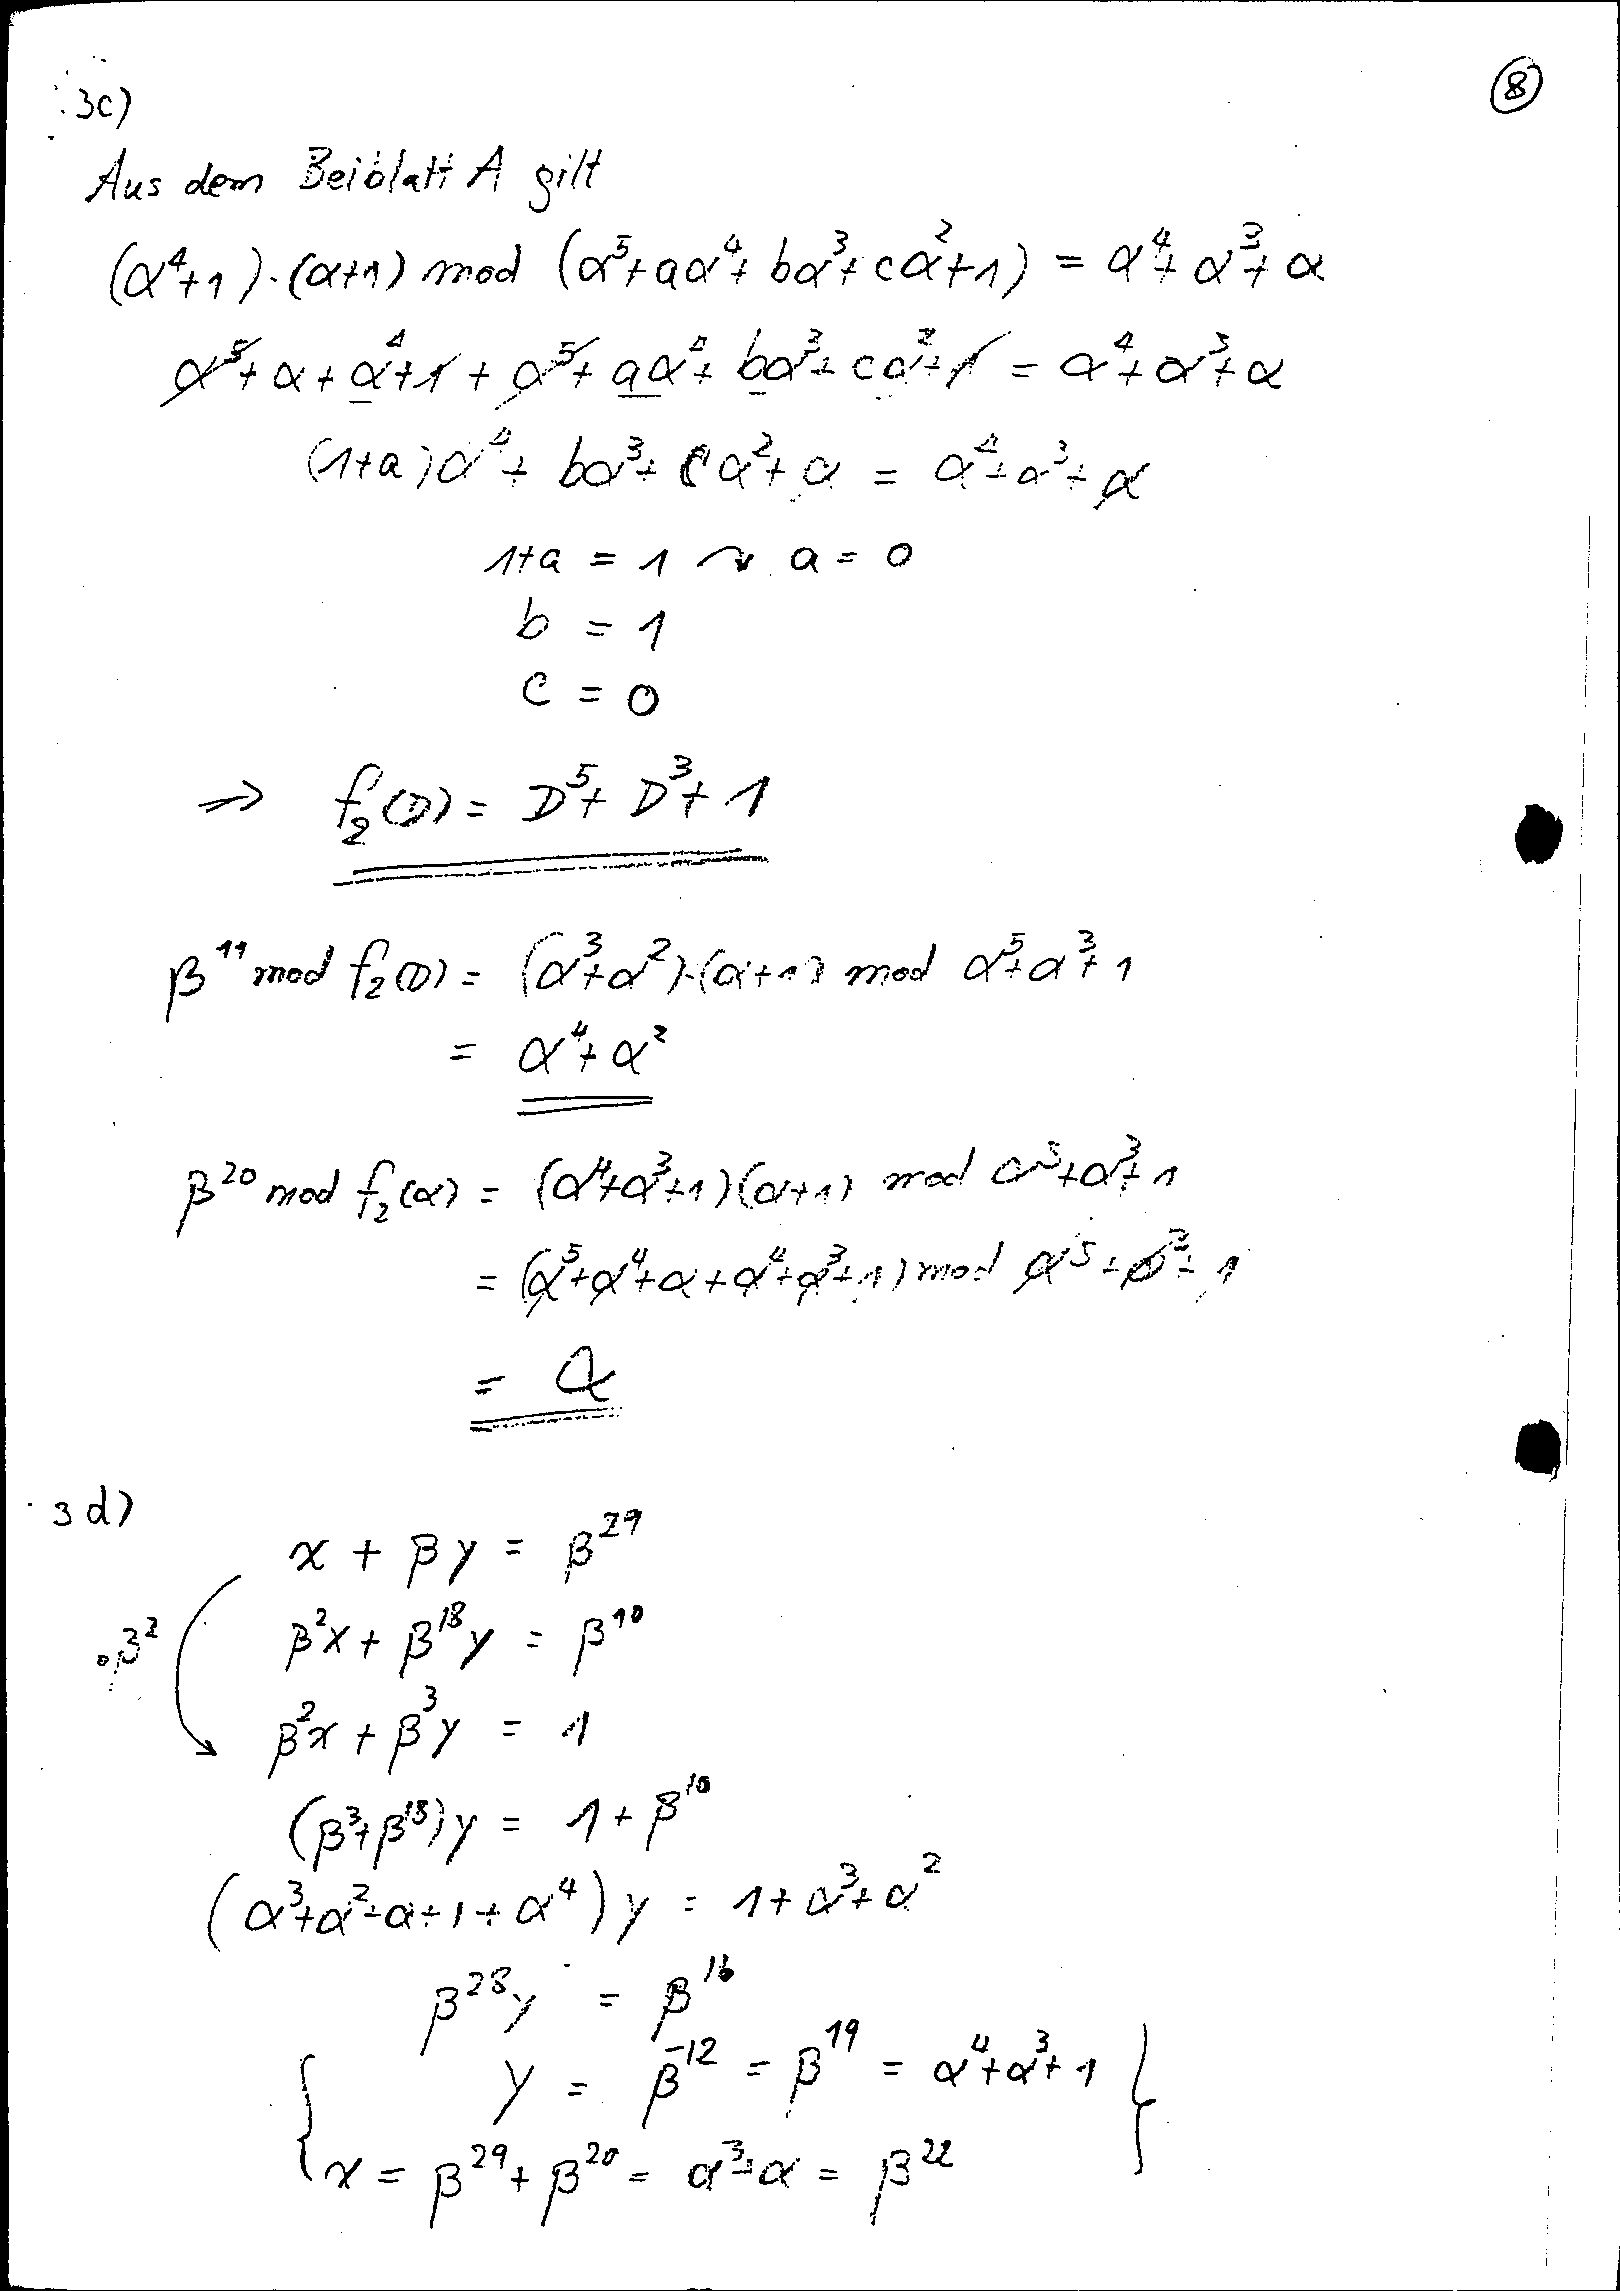 8
3c)
Aus dem Beiblatt A gilt
(α⁴+1)·(α+1) mod (α⁵+aα⁴+bα³+cα²+1) = α⁴+α³+α
α⁵+α+α⁴+1+α⁵+aα⁴+bα³+cα²+1 = α⁴+α³+α
(1+a)α⁴+bα³+cα²+α = α⁴+α³+α
1+a = 1 ↷ a = 0
b = 1
c = 0
⇒ f₂(D) = D⁵+D³+1
β¹¹ mod f₂(D) = (α³+α²)·(α+1) mod α⁵+α³+1
= α⁴+α²
β²⁰ mod f₂(α) = (α⁴+α³+1)(α+1) mod α⁵+α³+1
= (α⁵+α⁴+α+α⁴+α³+1) mod α⁵+α³+1
= α
3d)
x + βy = β²⁹
·β² β²x + β¹⁸y = β¹⁰
β²x + β³y = 1
(β³+β¹⁸)y = 1+β¹⁰
(α³+α²+α+1+α⁴)y = 1+α³+α²
β²⁸y = β¹⁶
y = β⁻¹² = β¹⁹ = α⁴+α³+1
x = β²⁹+β²⁰ = α³+α = β²²